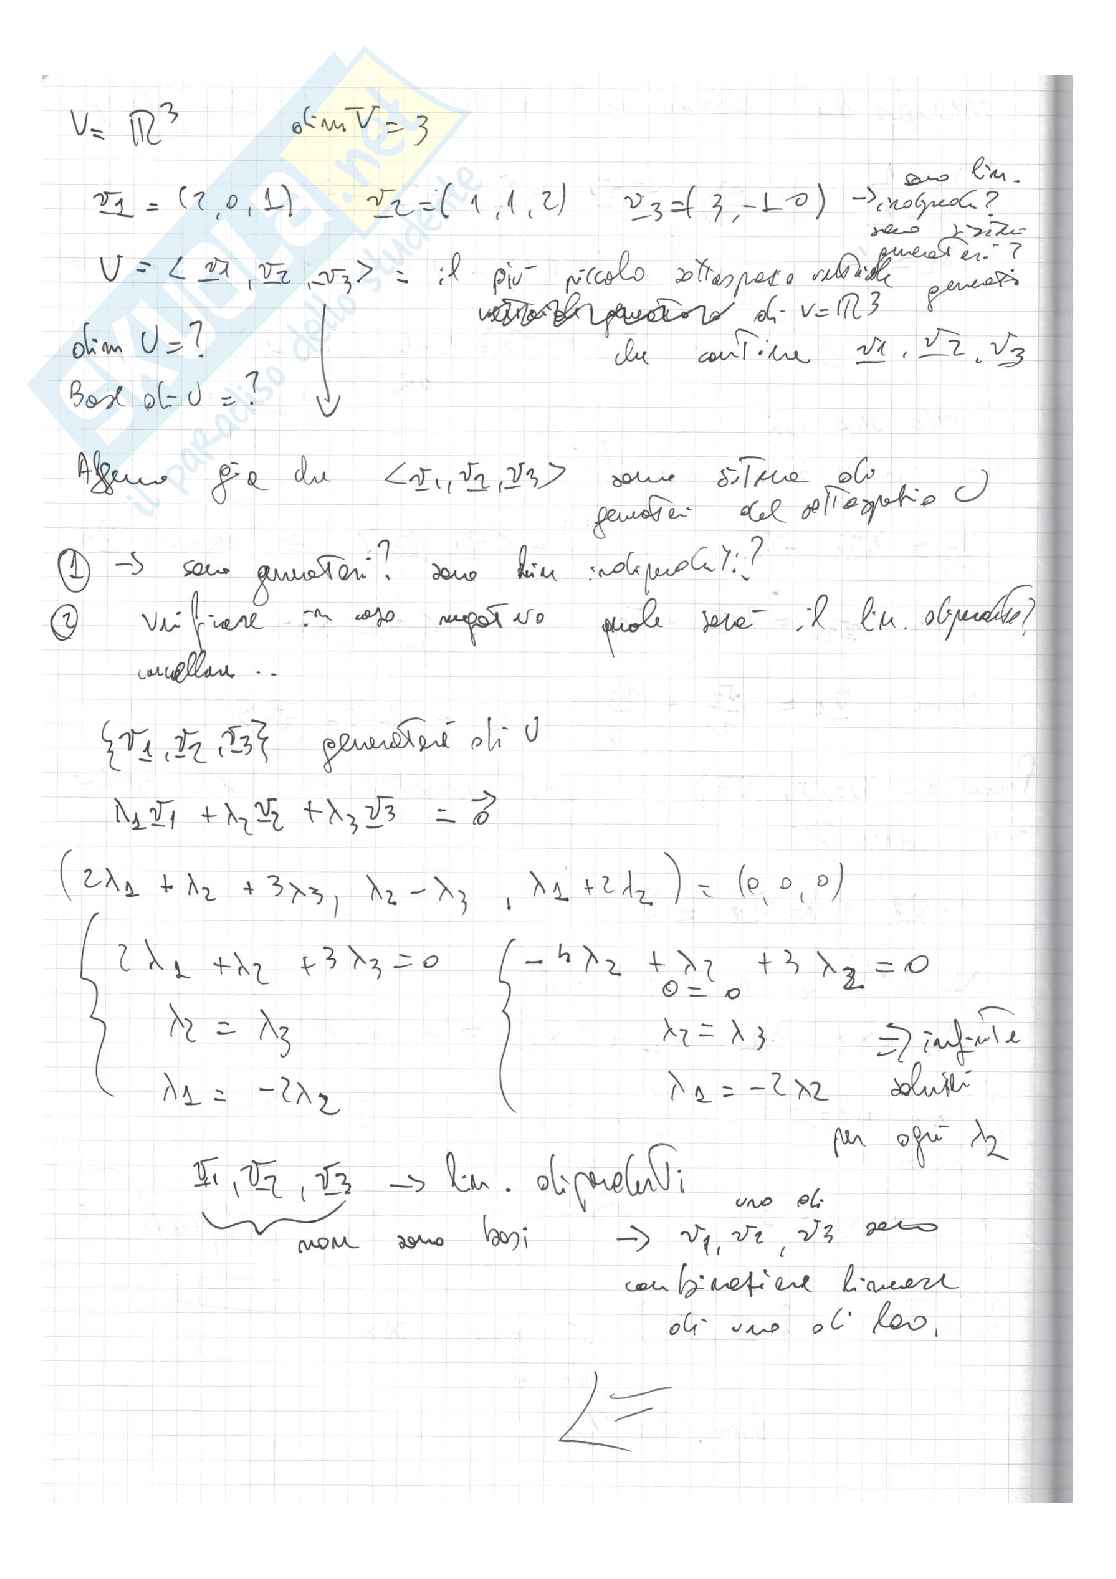 V = ℝ³ dim V = 3
v1 = (2, 0, 1) v2 = (1, 1, 2) v3 = (3, -1 0) → sono lin. indipendi?
sono sistem generatori?
U = <v1, v2, v3> = il più piccolo sottospazio vettoriale generati
di V = ℝ³
dim U = ?
che contiene v1, v2, v3
Base di U = ?
già che <v1, v2, v3> sono sistema di
generatori del sottospazio U
① → sono generatori? sono lin indipendenti?
② Verificare in caso negativo quale sarà il lin. dipendente?
cancellare ..
{v1, v2, v3} generatori di U
λ1v1 + λ2v2 + λ3v3 = 0
(2λ1 + λ2 + 3λ3, λ2 - λ3, λ1 + 2λ2) = (0, 0, 0)
{ 2λ1 + λ2 + 3λ3 = 0 { -4λ2 + λ2 + 3λ2 = 0
0 = 0
λ2 = λ3 λ2 = λ3 ⇒ infinite
λ1 = -2λ2 λ1 = -2λ2 soluzioni
per ogni λ2
v1, v2, v3 → lin. dipendenti
uno di
non sono basi → v1, v2, v3 sono
combinazione lineare
di uno di loro.
SKUOLA.net
il paradiso dello studente